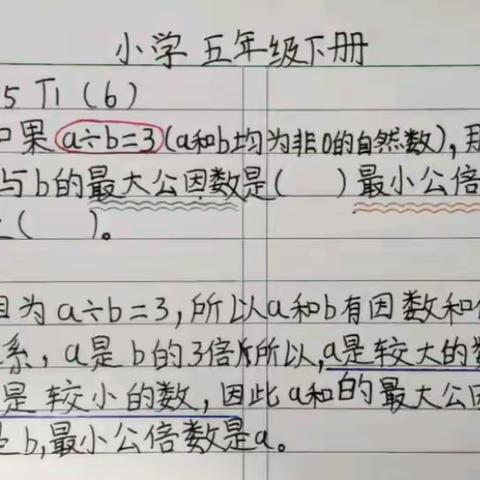 小学 五年级下册
5 T1 (6)
如果 a÷b=3 (a和b均为非0的自然数), 那
与b的最大公因数是(    ) 最小公倍
(    )。
因为a÷b=3, 所以a和b有因数和
系, a是b的3倍 所以, a是较大的数
是较小的数, 因此a和的最大公因
是b, 最小公倍数是a。